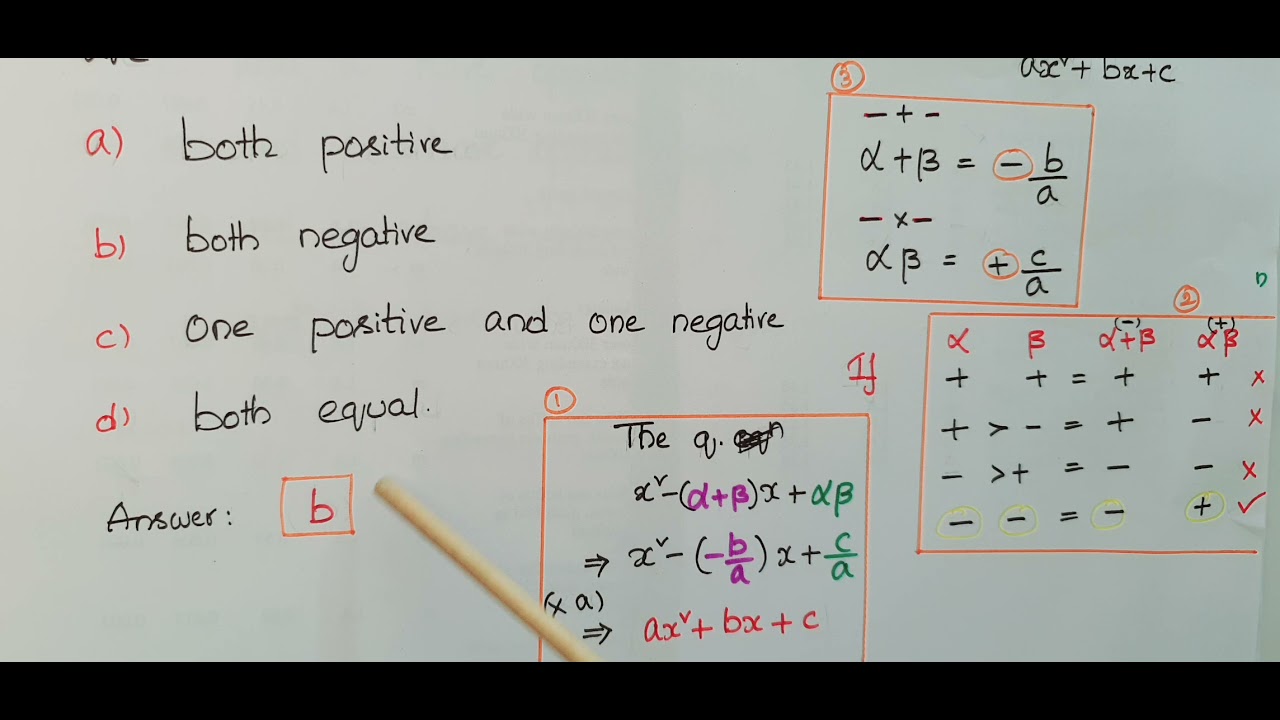 ax² + bx + c
a) both positive
b) both negative
c) one positive and one negative
d) both equal.
Answer: b
①
The q.
x² - (α+β)x + αβ
⇒ x² - (-b/a)x + c/a
(x a)
⇒ ax² + bx + c
③
- + -
α + β = - b/a
- x -
α β = + c/a
②
If
(-) (+)
α β α+β αβ
+ + = + + x
+ > - = + - x
- > + = - - x
- - = - + ✓
D